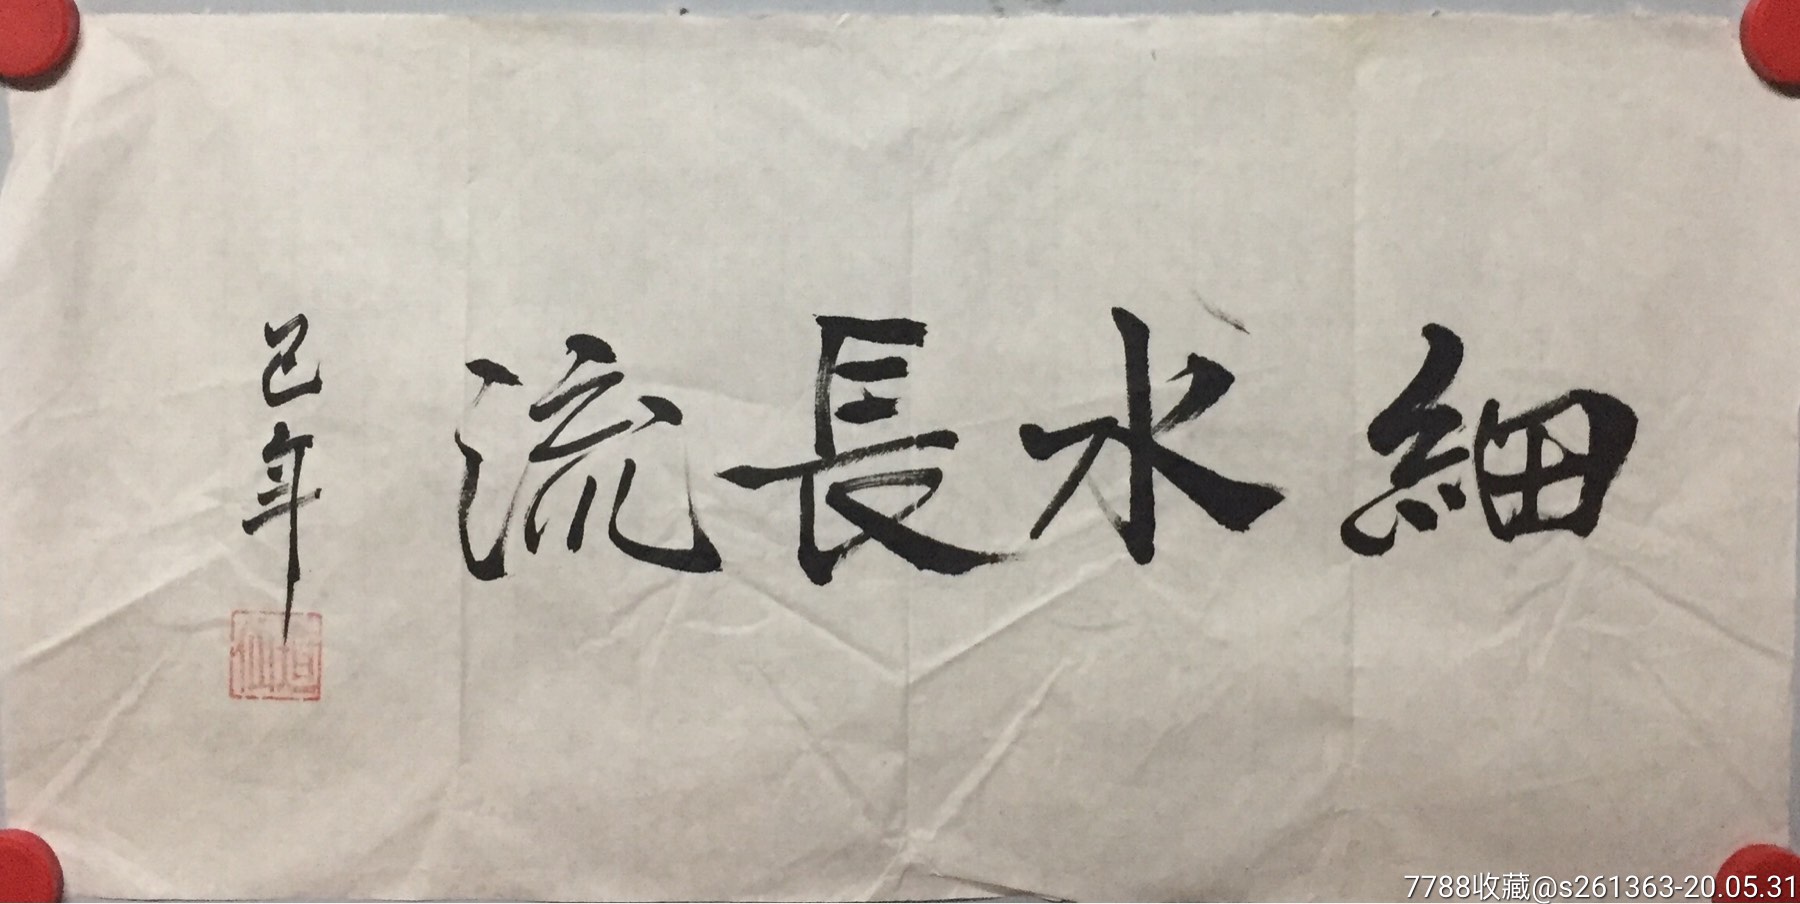 細水長流
己年
7788收藏@s261363-20.05.31